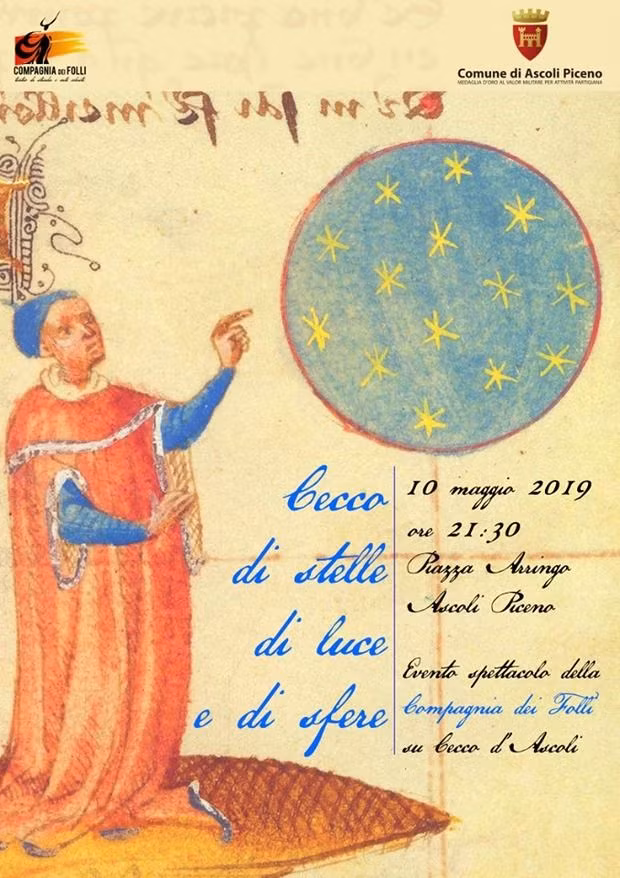 COMPAGNIA DEI FOLLI
Comune di Ascoli Piceno
MEDAGLIA D'ORO AL VALOR MILITARE PER ATTIVITÀ PARTIGIANA
Cecco
di stelle
di luce
e di sfere
10 maggio 2019
ore 21:30
Piazza Arringo
Ascoli Piceno
Evento spettacolo della
Compagnia dei Folli
su Cecco d'Ascoli